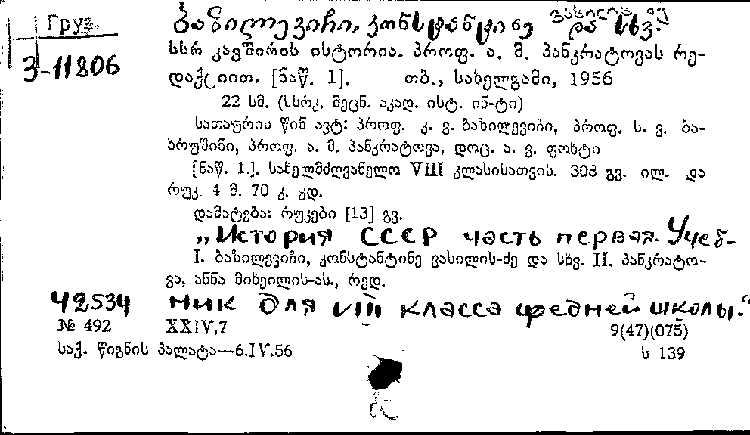 Груз. ბაზილევიჩი, კონსტანტინე ვასილის ძე და სხვ.
3-11806 სსრ კავშირის ისტორია. პროფ. ა. მ. პანკრატოვას რე-
დაქციით. [ნაწ. 1]. თბ., სახელგამი, 1956
22 სმ. (სსრკ, მეცნ. აკად. ისტ. ინ-ტი)
სათაურის წინ ავტ: პროფ. კ. ვ. ბაზილევიჩი, პროფ. ს. ვ. ბა-
ხრუშინი, პროფ. ა. მ. პანკრატოვა, დოც. ა. ვ. ფოხტი
[ნაწ. 1.]. სახელმძღვანელო VIII კლასისათვის. 308 გვ. ილ. და
რუკ. 4 მ. 70 კ. ყდ.
დამატება: რუკები [13] გვ.
„История СССР часть первая. Учеб-
I. ბაზილევიჩი, კონსტანტინე ვასილის-ძე და სხვ. II. პანკრატო-
ვა, ანნა მიხეილის-ას., რედ.
42534 ник для VIII класса средней школы."
№ 492 XXIV,7 9(47)(075)
საქ. წიგნის პალატა—6.IV.56 ს 139